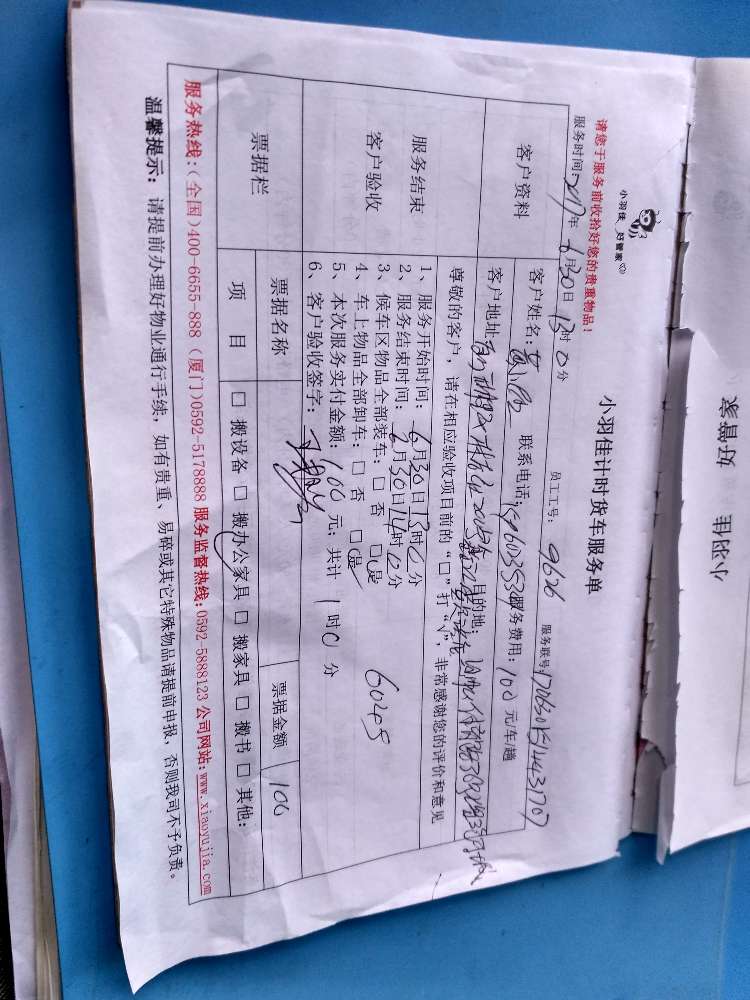 小羽佳 好管家
小羽佳计时货车服务单
请您于服务前收拾好您的贵重物品!
服务时间:2017年6月30日13时0分 员工工号: 9626 服务联号:
客户资料
客户姓名: 联系电话: 服务费用:100元/车/趟
客户地址: 目的地:
尊敬的客户,请在相应验收项目前的“□”打“√”,非常感谢您的评价和意见
服务结束
客户验收
1、服务开始时间:6月30日13时0分
2、服务结束时间:6月30日14时0分
3、候车区物品全部装车:□否 □是
4、车上物品全部卸车:□否 □是
5、本次服务实付金额:100元;共计1时0分
6、客户验收签字:
6045
票据栏
票据名称
票据金额
100
项目
□搬设备 □搬办公家具 □搬家具 □搬书 □其他:
服务热线:(全国)400-6655-888 (厦门)0592-5178888 服务监督热线:0592-5888123 公司网站:www.xiaoyujia.com
温馨提示: 请提前办理好物业通行手续,如有贵重、易碎或其它特殊物品请提前申报,否则我司不予负责。
小羽佳
好管家